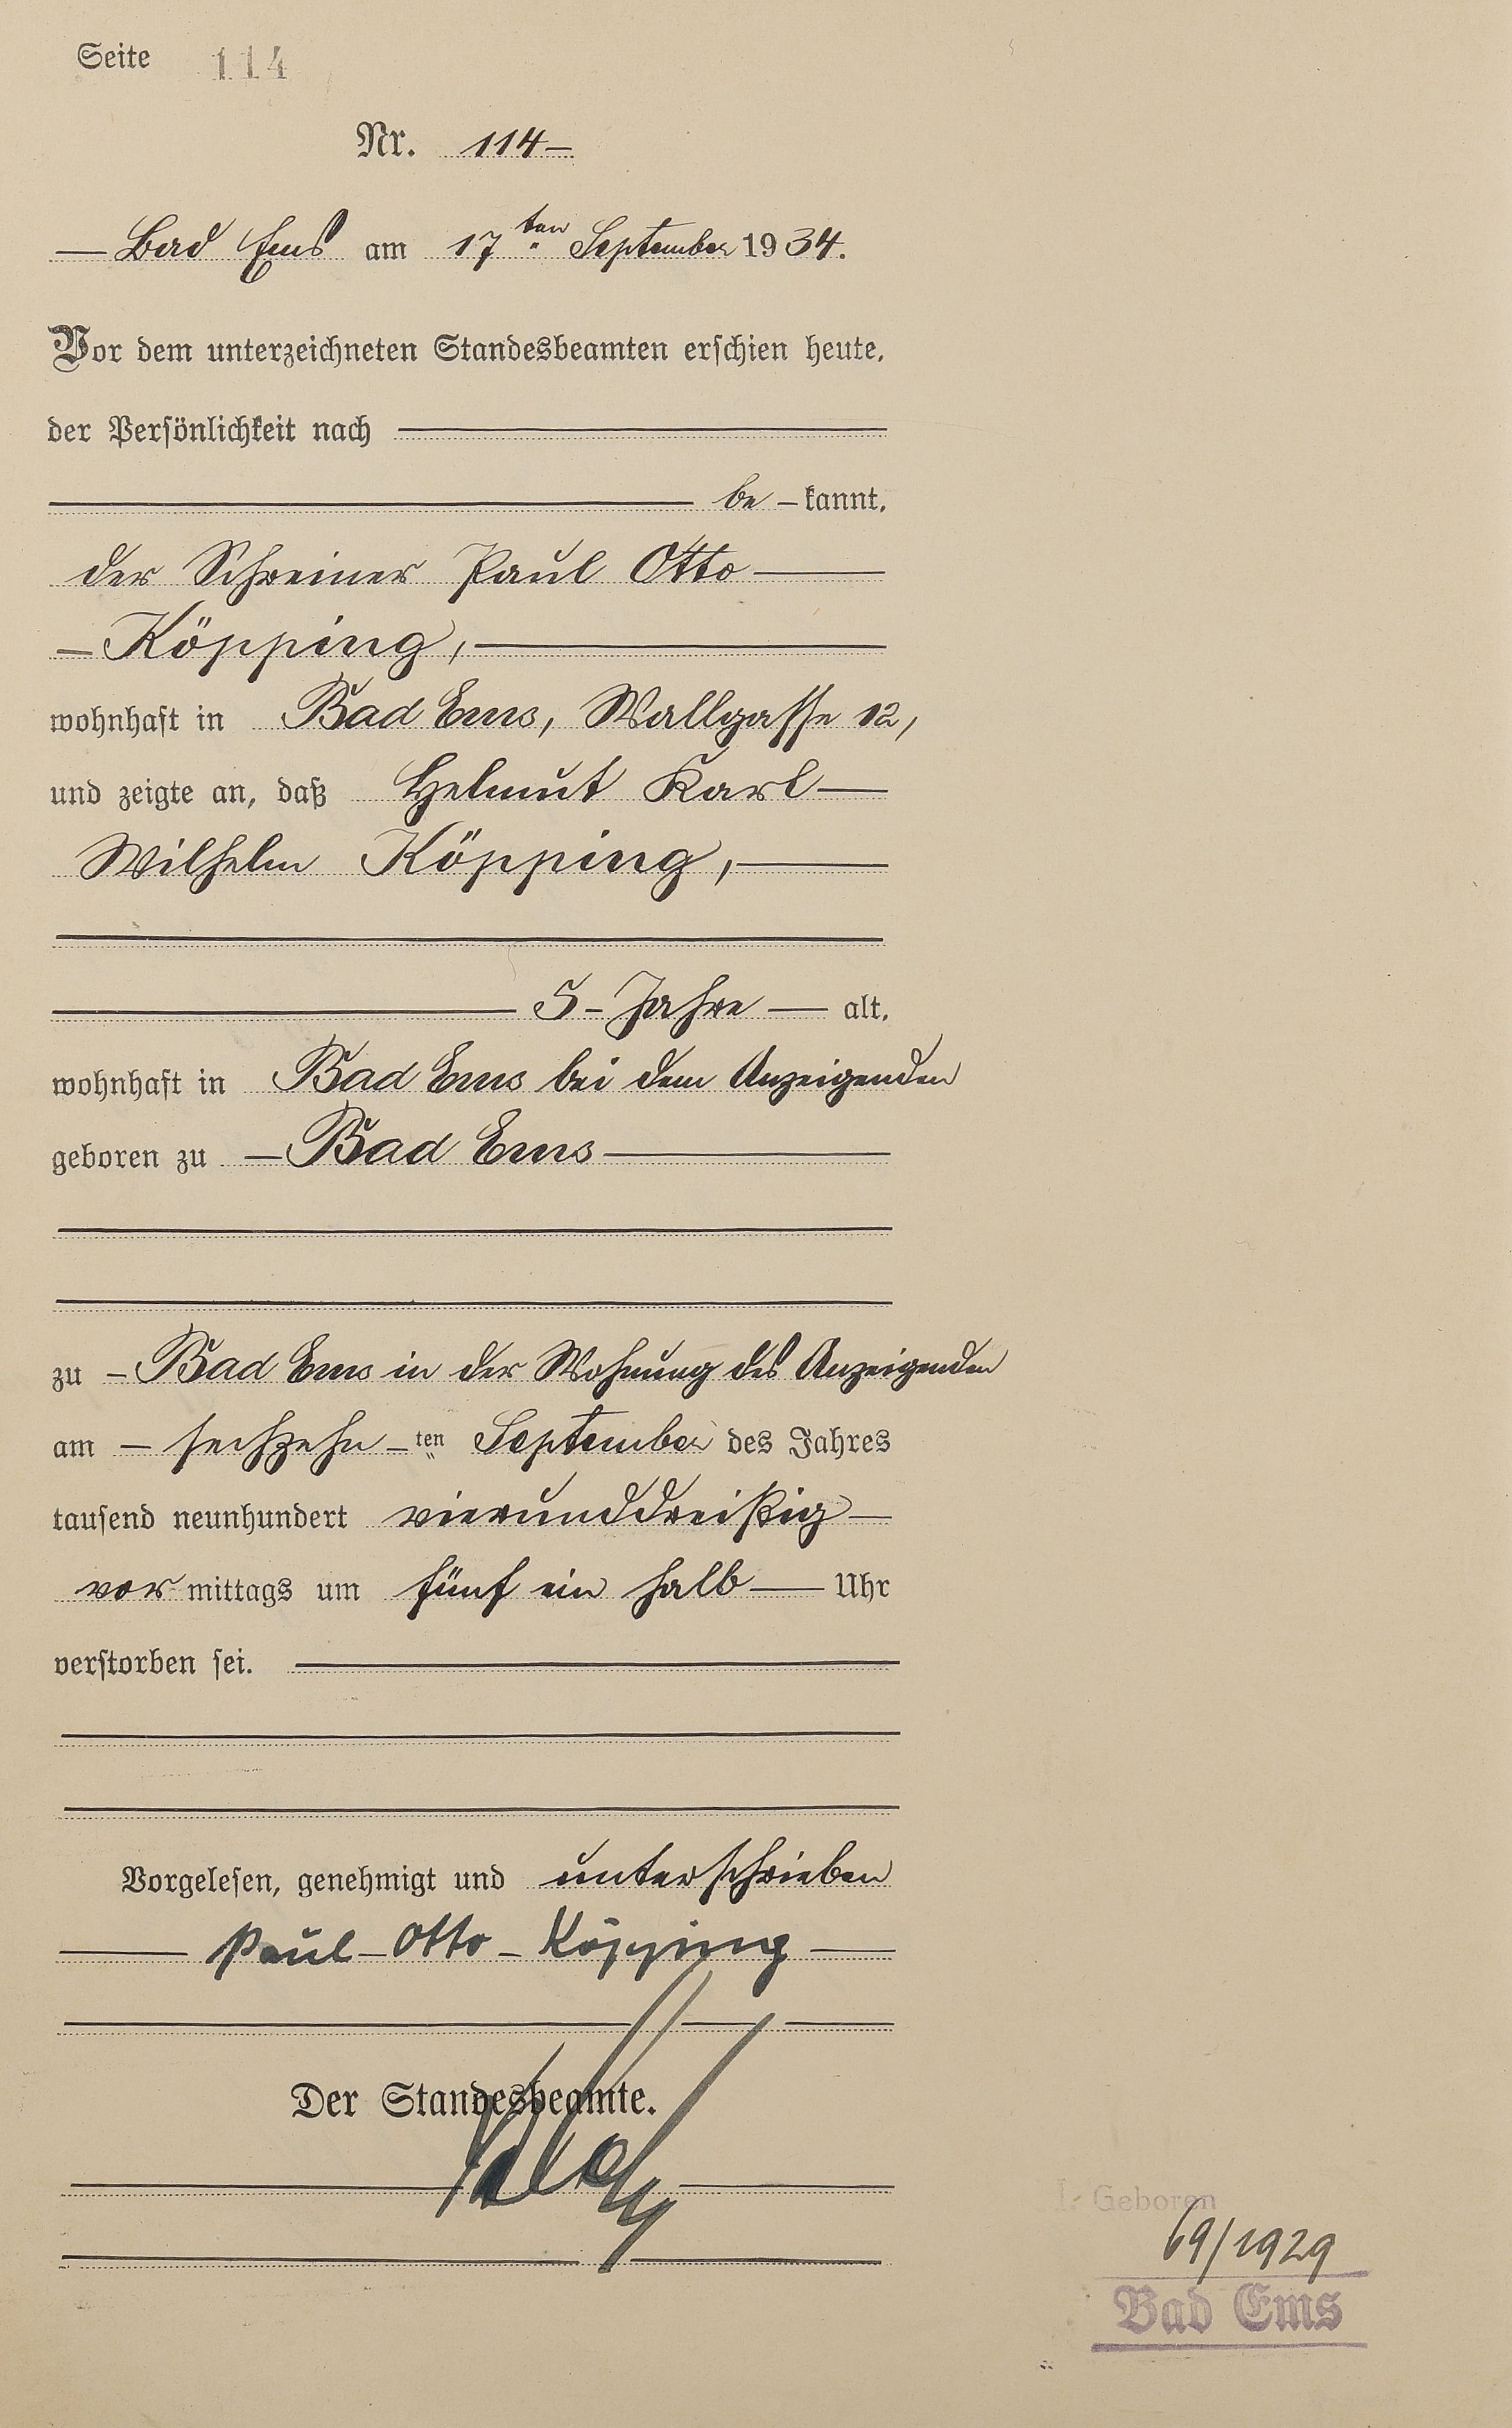 Seite 114
Nr. 114
Bad Ems am 17ten September 1934.
Vor dem unterzeichneten Standesbeamten erschien heute,
der Persönlichkeit nach
be - kannt,
der Schreiner Paul Otto
Köpping,
wohnhaft in Bad Ems, Wallgasse 12,
und zeigte an, daß Helmut Karl
Wilhelm Köpping,
5 Jahre alt,
wohnhaft in Bad Ems bei dem Anzeigenden
geboren zu Bad Ems
zu Bad Ems in der Wohnung des Anzeigenden
am sechzehn ten September des Jahres
tausend neunhundert vierunddreißig
vor mittags um fünf ein halb Uhr
verstorben sei.
Vorgelesen, genehmigt und unterschrieben
Paul Otto Köpping
Der Standesbeamte.
Geboren
69/1929
Bad Ems